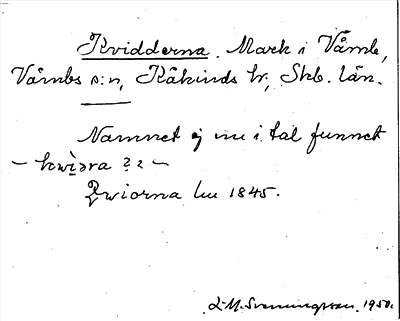 Kvidderna. Mark i Våmb,
Våmbs s:n, Kåkinds hr, Skb. län.
Namnet ej nu i tal funnet
– kwìəra ?? –
Qwiorna Lm 1845.
L-M. Svenningsson. 1950.